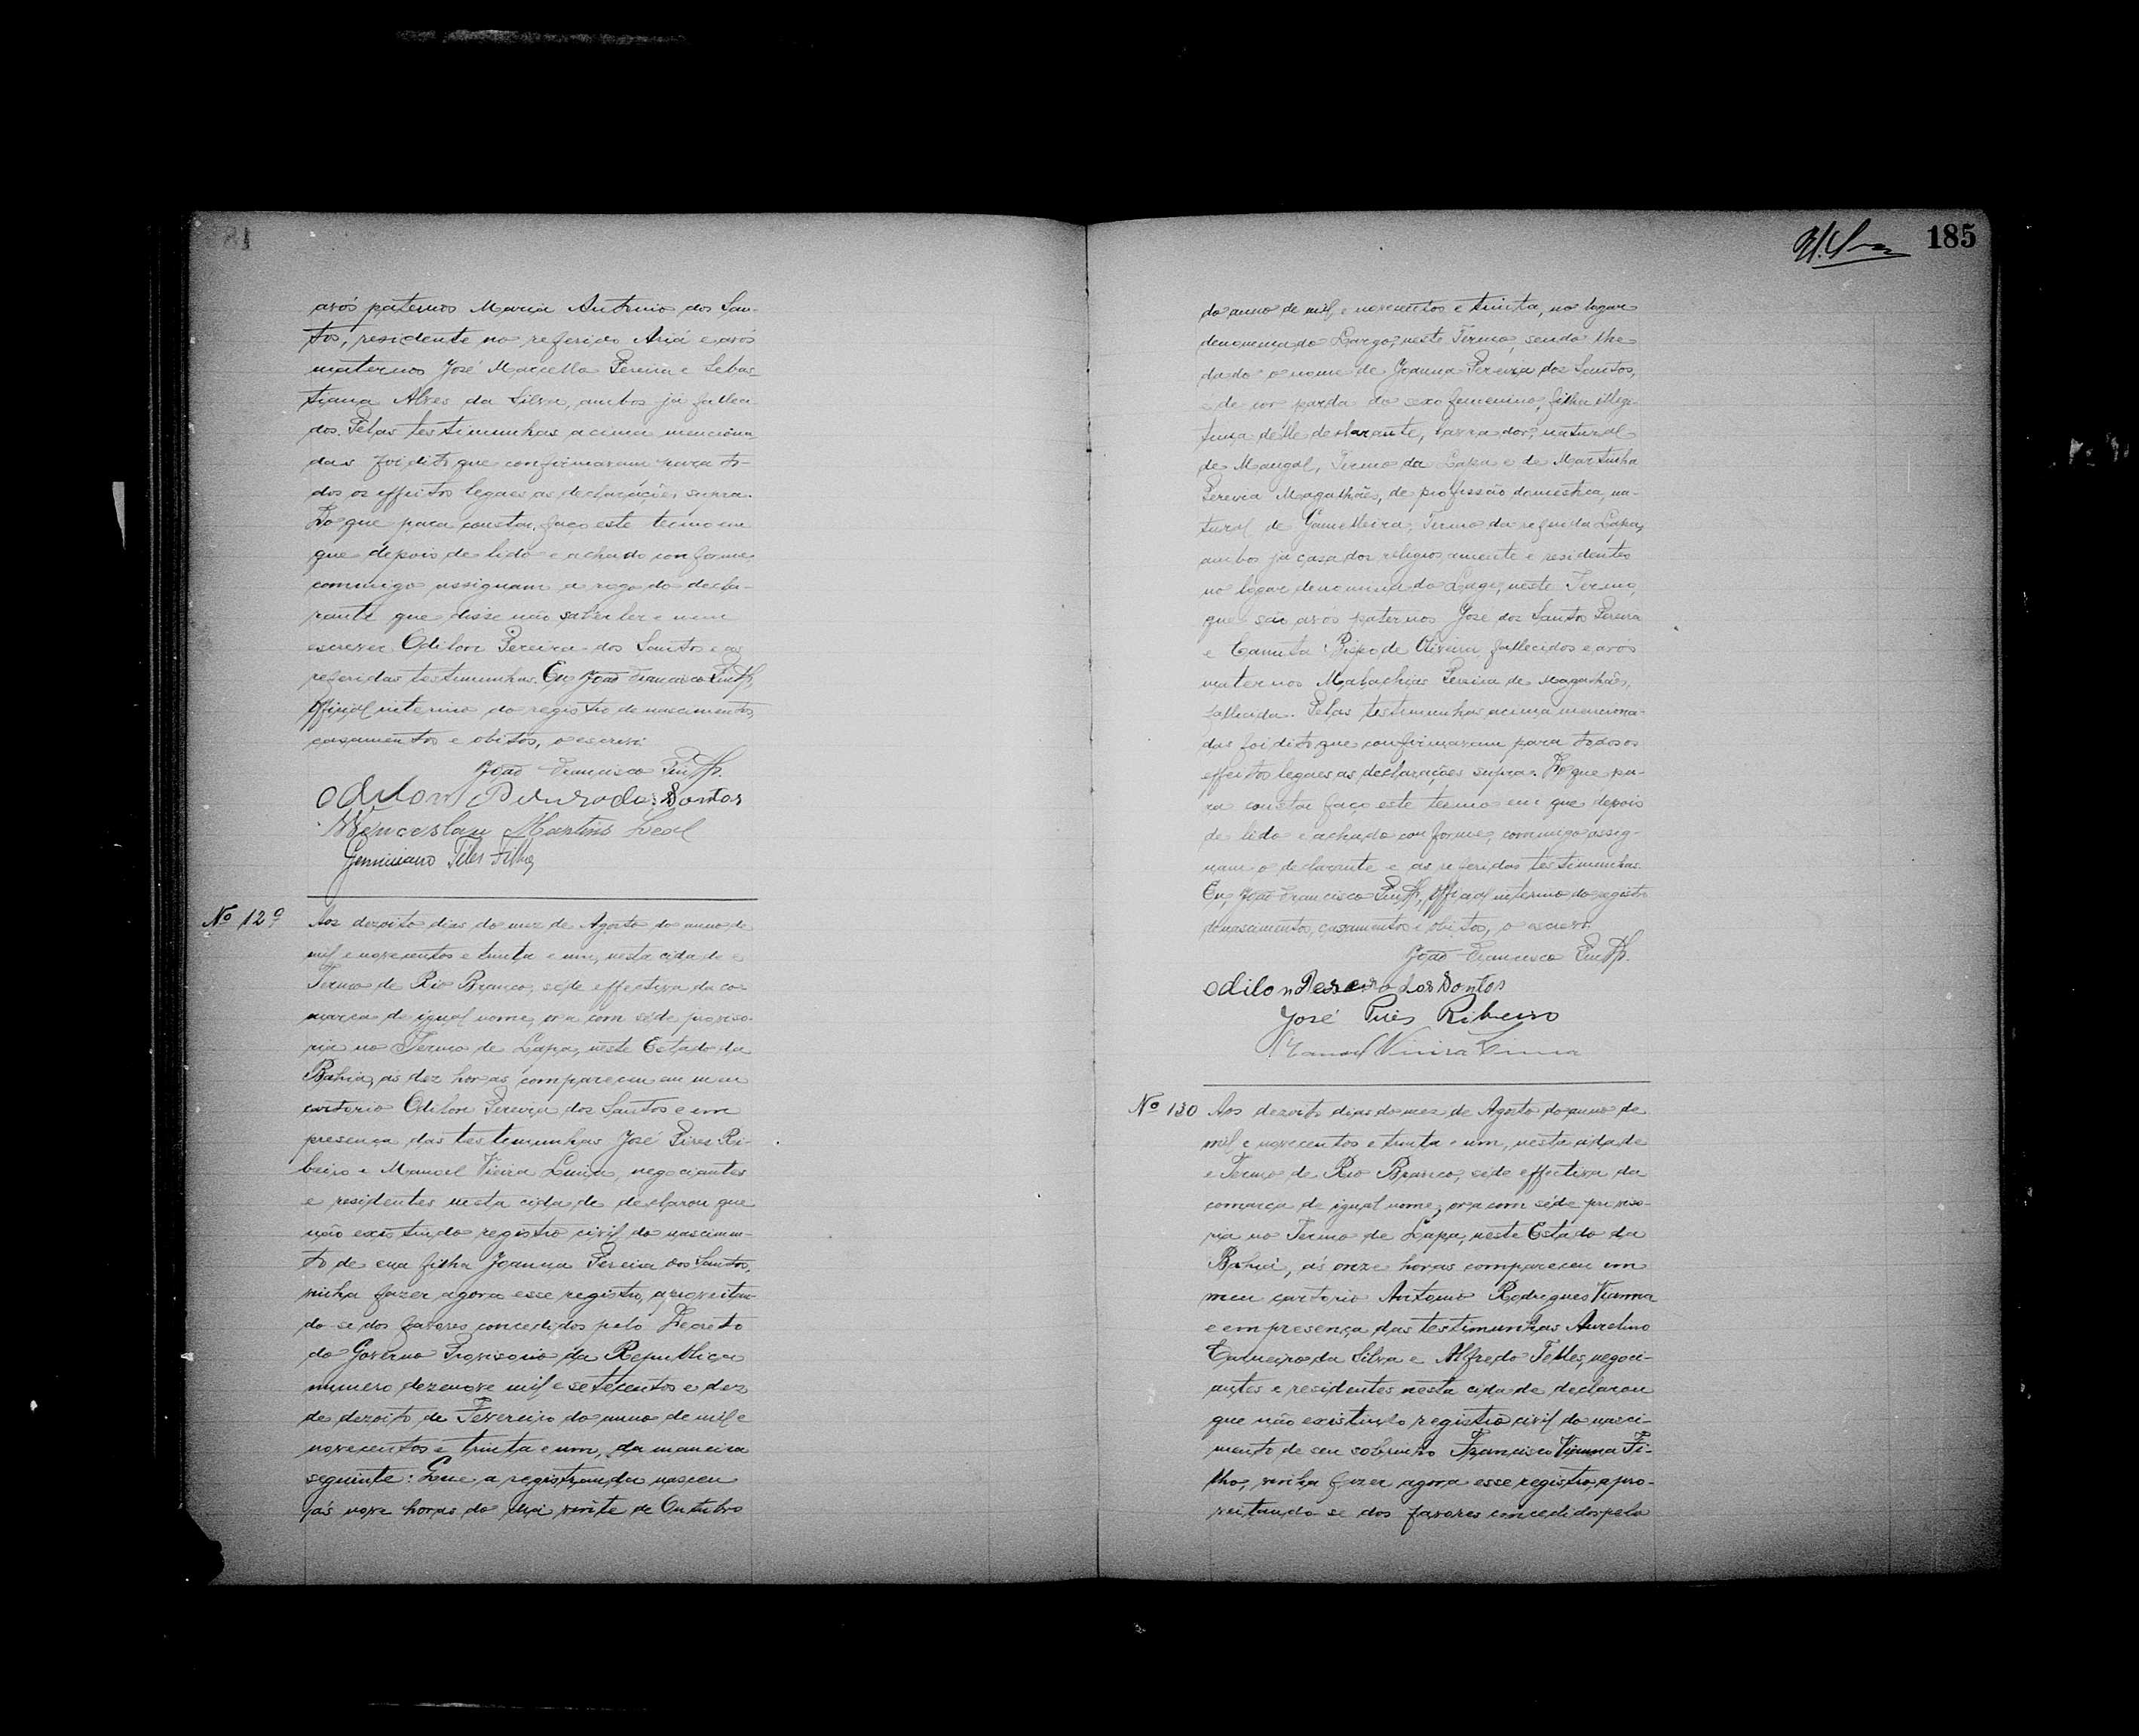 avós paternos Maria Antonia dos San-
tos, residente no referido Ariá e avós
maternos José Marcello Pereira e Sebas-
tiana Alves da Silva, ambos já falleci
dos. Pelas testimunhas acima menciona
das foi dito que confirmavam para to-
dos os effeitos legaes as declarações supra.
Do que para constar, faço este termo em
que depois de lido e achado conforme,
commigo assignam a rogo do decla-
rante que disse não saber ler e nem
escrever Odilon Pereira dos Santos e as
referidas testimunhas. Eu, João Francisco
Official interino do registro de nascimentos
casamentos e obitos, o escrevi.
João Francisco
Odilon Pereira dos Santos
Wenceslau Martins Leal
Geminiano Teles Filho
Nº 129
Aos dezoito dias do mez de Agosto do anno de
mil e novecentos e trinta e um, nesta cidade e
Termo de Rio Branco, séde effectiva da co-
marca de igual nome, ora com séde proviso-
ria no Termo de Lapa, neste Estado da
Bahia, ás dez horas compareceu em meu
cartorio Odilon Pereira dos Santos e em
presença das testimunhas José Pires Ri-
beiro e Manoel Vieira Lima, negociantes
e residentes nesta cidade declarou que
não existindo registro civil do nascimen-
to de sua filha Joanna Pereira dos Santos,
vinha fazer agora esse registro, aproveitan-
do-se dos favores concedidos pelo Decreto
do Governo Provisorio da Republica
numero dezenove mil e setecentos e dez
de dezoito de Fevereiro do anno de mil e
novecentos e trinta e um, da maneira
seguinte: Que a registranda nasceu
ás nove horas do dia vinte de Outubro
185
do anno de mil e novecentos e trinta, no logar
denominado Largo, neste Termo, sendo lhe
dado o nome de Joanna Pereira dos Santos,
é de cor parda do sexo femenino, filha illegi-
tima delle declarante, lavrador, natural
de Mangal, Termo da Lapa e de Martinha
Pereira Magalhães, de profissão domestica, na-
tural de Gamelleira, Termo da referida Lapa,
ambos já casados religiosamente e residentes
no logar denominado Lage, neste Termo,
que são avós paternos José dos Santos Pereira
e Bispo de Oliveira, fallecidos e avós
maternos Malachias Pereira de Magalhães,
fallecida. Pelas testimunhas acima menciona-
das foi dito que confirmavam para todos os
effeitos legaes as declarações supra. Do que pa-
ra constar faço este termo em que depois
de lido e achado conforme, commigo assig-
nam o declarante e as referidas testimunhas.
Eu, João Francisco Official interino do registro
de nascimentos, casamentos e obitos, o escrevi.
João Francisco
Odilon Pereira dos Santos
José Pires Ribeiro
Manoel Vieira Lima
Nº 130
Aos dezoito dias do mez de Agosto do anno de
mil e novecentos e trinta e um, nesta cidade
e Termo de Rio Branco, séde effectiva da
comarca de igual nome, ora com séde proviso-
ria no Termo de Lapa, neste Estado da
Bahia, ás onze horas compareceu em
meu cartorio Antonio Rodrigues Vianna
e em presença das testimunhas Aurelino
Carneiro da Silva e Alfredo Telles, negoci-
antes e residentes nesta cidade declarou
que não existindo registro civil do nasci-
mento de seu sobrinho Francisco Vianna Fi-
lho, vinha fazer agora esse registro, apro-
veitando se dos favores concedidos pelo